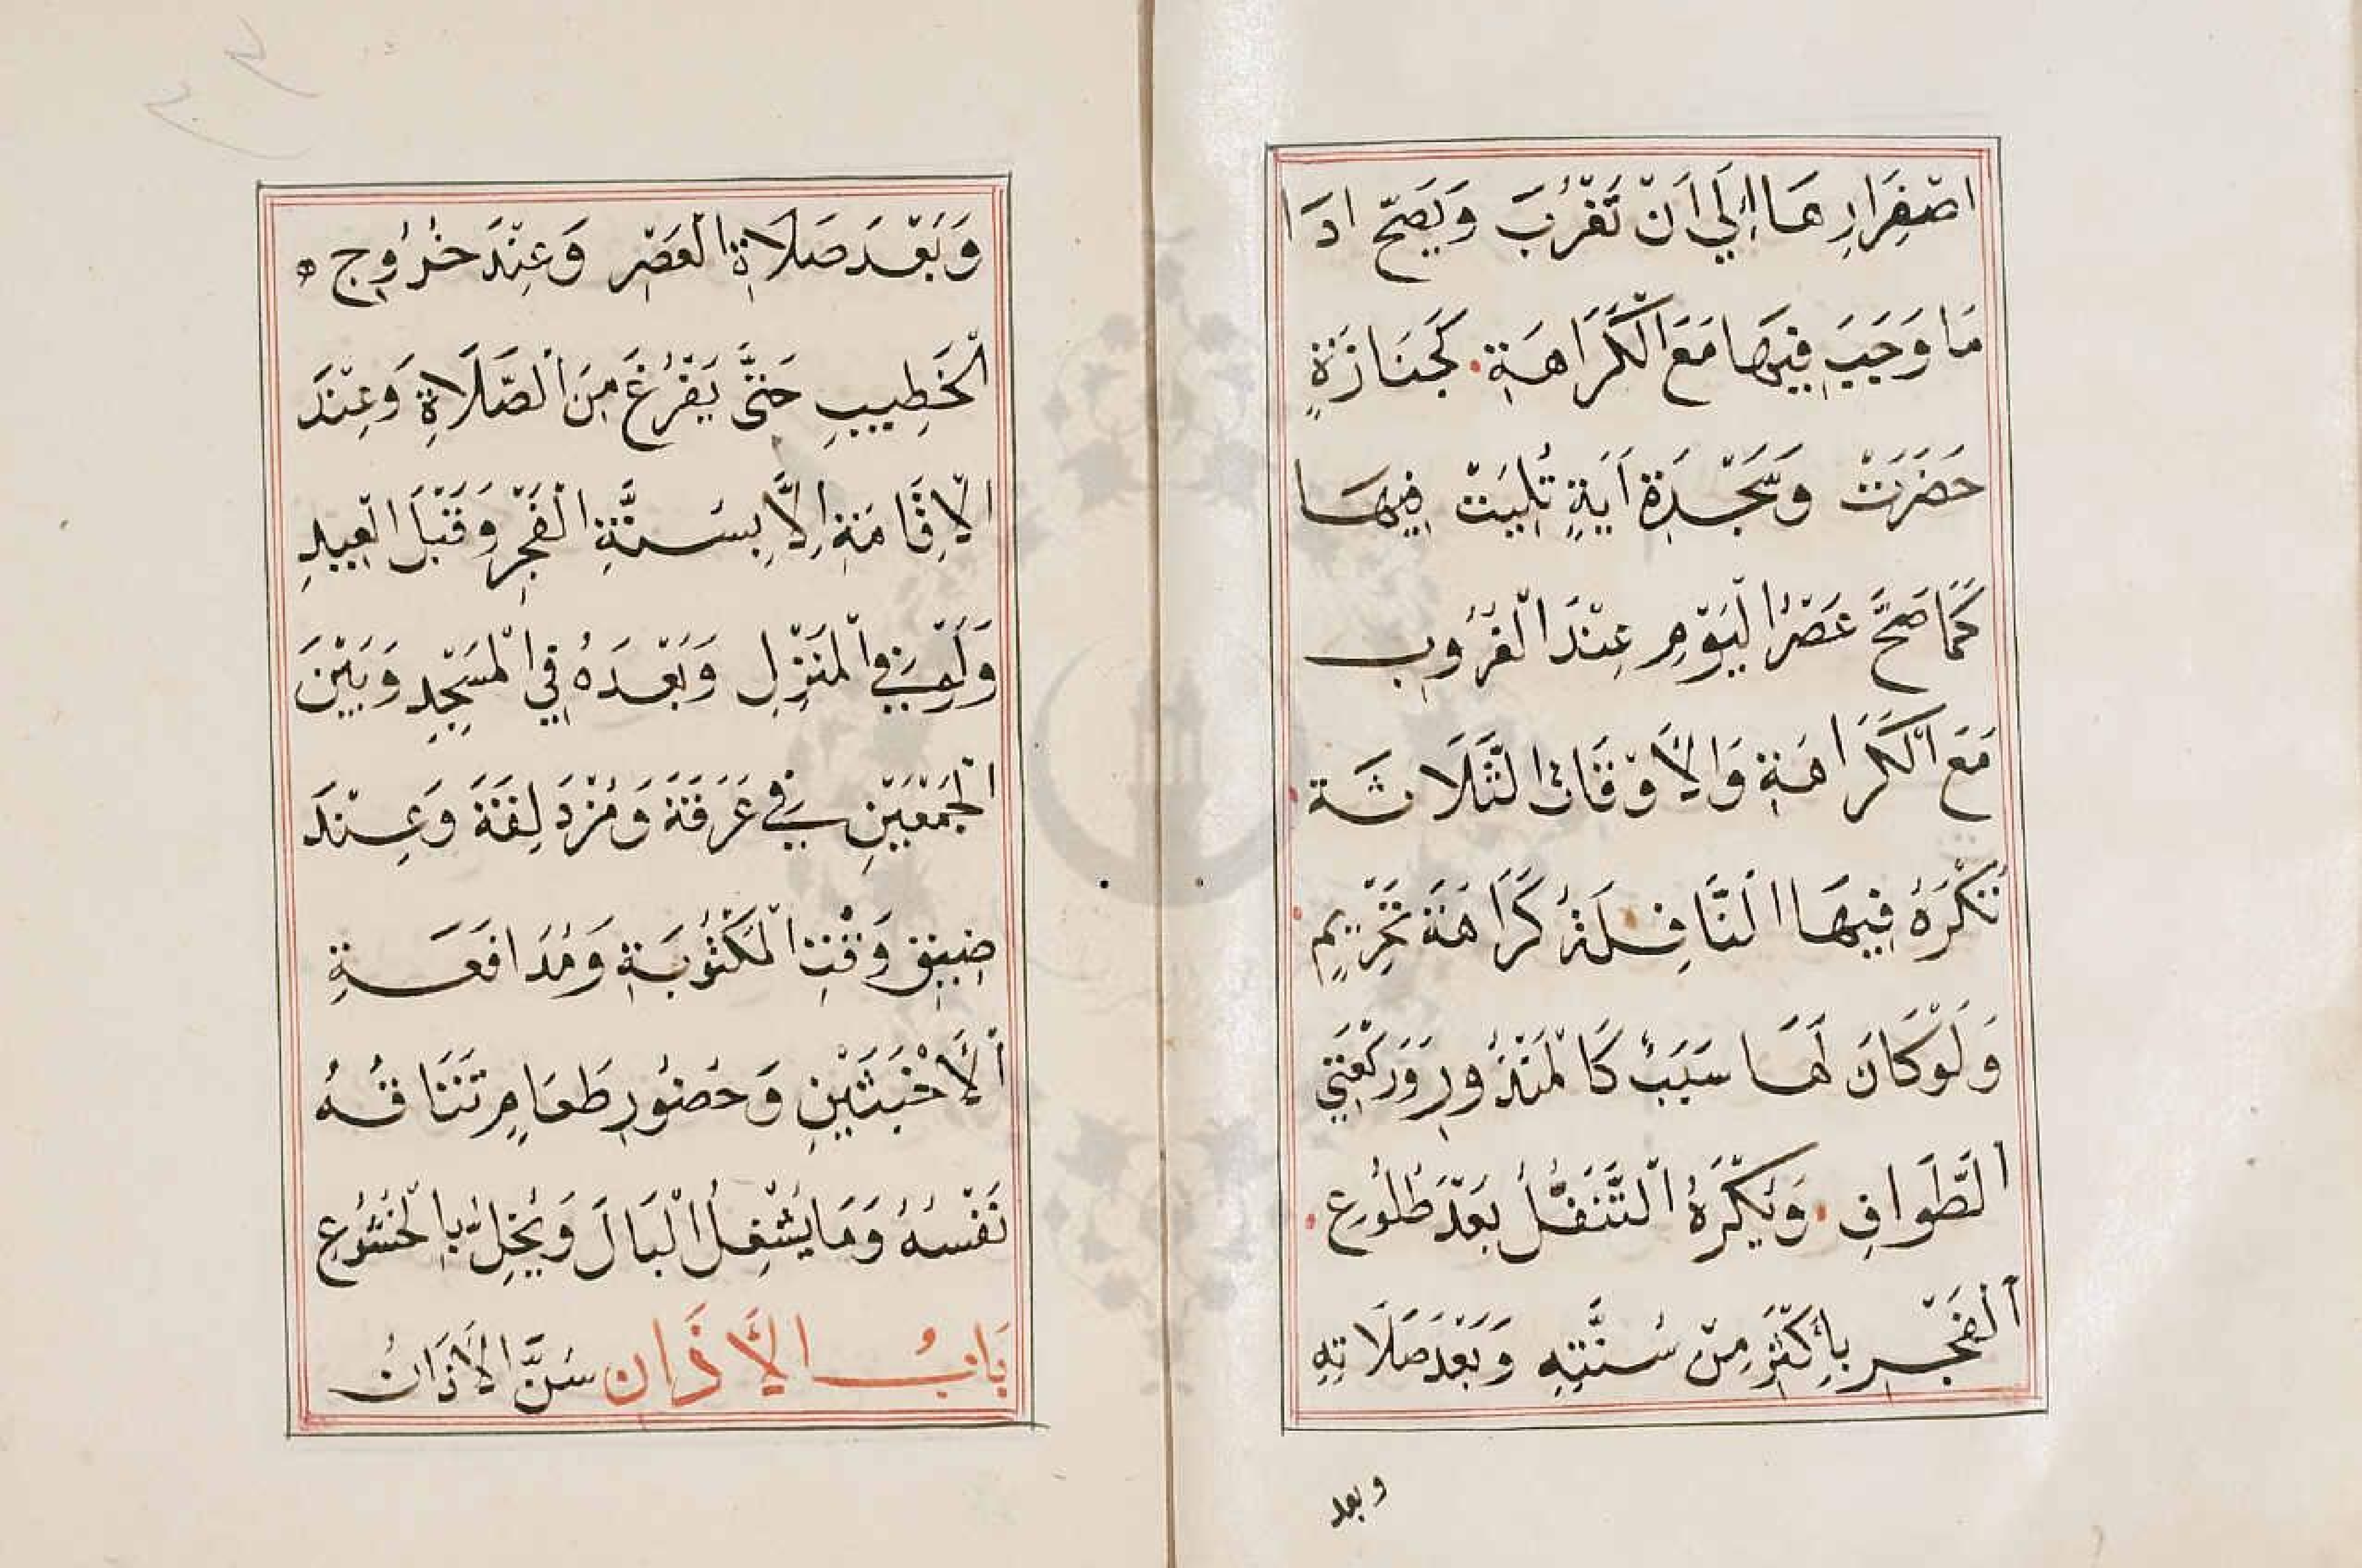 اصْفِرَارِهَا اِلَي اَنْ تَغْرُبَ وَيَصَحّ ادَا
مَا وَجَبَ فِيهَا مَعَ الْكَرَاهَةِ كَجَنَازَةٍ
حَضَرَتْ وَسَجْدَةِ اَيَةٍ تُلِيَتْ فِيهَا
كَمَا صَحَّ عَصْرُ الْيَوْمِ عِنْدَ الْغُرُوبِ
مَعَ الْكَرَاهَةِ وَالأَوْقَاتُ الثَّلَاثَة
تُكْرَهُ فِيهَا النَّافِلَةُ كَرَاهَةَ تَحْرِيمٍ
وَلَوْ كَانَ لَهَا سَبَبٌ كَالْمَنْذُورِ وَرَكْعَتَيْ
الطَّوَافِ وَيُكْرَهُ التَّنَفُّلُ بَعْدَ طُلُوُعِ
اَلْفَجْرِ بِاَكْثَرَ مِنْ سُنَّتِهِ وَبَعْدَ صَلَاتِهِ
وبعد
وَبَعْدَ صَلَاةِ الْعَصْرِ وَعِنْدَ خُرُوجِ
الْخَطِيبِ حَتَّى يَفْرُغَ مِنَ الصَّلَاةِ وَعِنْدَ
الْاِقَامَةِ اِلاَّ بِسُنَّةِ الْفَجْرِ وَقَبْلَ الْعِيدِ
وَلَوْ فِي الْمَنْزِلِ وَبَعْدَهُ فِي الْمَسْجِدِ وَبَيْنَ
الْجَمْعَيْنِ فِي عَرَفَةَ وَمُزْدَلِفَةَ وَعِنْدَ
ضِيقِ وَقْتِ الْمَكْتُوبَةِ وَمُدَافَعَةِ
اَلْأَخْبَثَيْنِ وَحُضُورِ طَعَامٍ تَتَاقُهُ
نَفْسُهُ وَمَا يُشْغِلُ الْبَالَ وَيُخِلُّ بِالْخُشُوُعِ
بَابُ الأَذَان سَنَّ الاَذَانُ